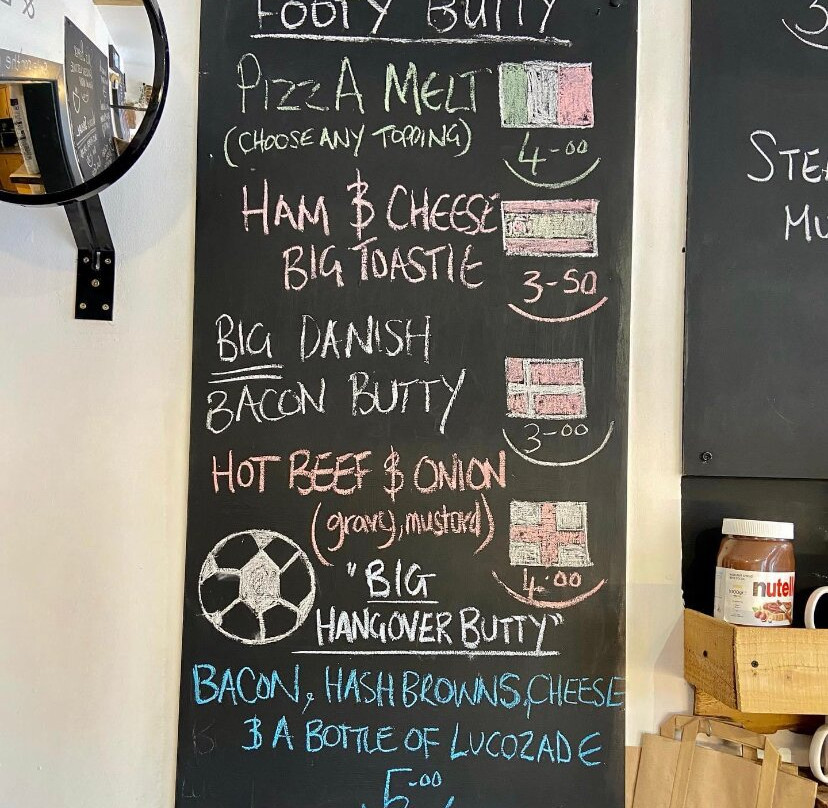 FOOTY BUTTY
PIZZA MELT
(CHOOSE ANY TOPPING)
4-00
HAM & CHEESE
BIG TOASTIE
3-50
BIG DANISH
BACON BUTTY
3-00
HOT BEEF & ONION
(gravy, mustard)
4.00
"BIG
HANGOVER BUTTY"
BACON, HASH BROWNS, CHEESE
& A BOTTLE OF LUCOZADE
5-00
STEA
MU
nutell